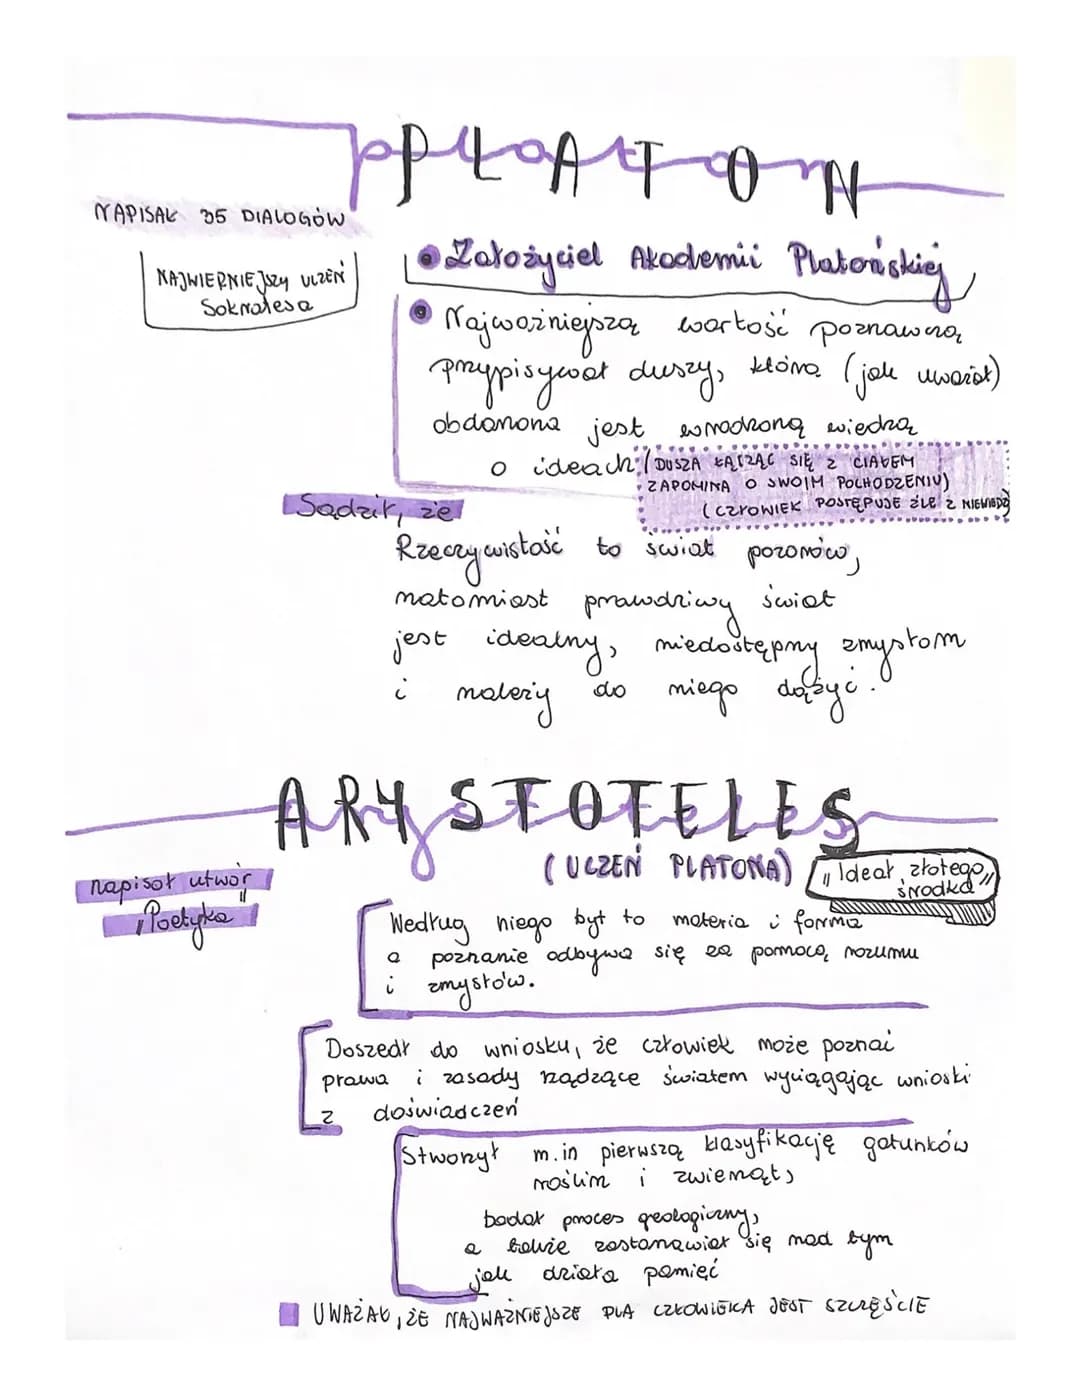 PLATON
NAPISAŁ 35 DIALOGÓW
NAJWIERNIEJSZY UCZEŃ
Sokratesa
• Założyciel Akademii Platońskiej
• Najważniejszą wartość poznawczą
przypisywał duszy, która (jak uważał)
obdarzona jest wrodzoną wiedzą
o ideach
(DUSZA ŁĄCZĄC SIĘ Z CIAŁEM
ZAPOMINA O SWOIM POCHODZENIU)
(CZŁOWIEK POSTĘPUJE ŹLE Z NIEWIEDZ
Sądził, że
Rzeczywistość to świat pozorów,
natomiast prawdziwy świat
jest idealny, niedostępny zmysłom
i należy do niego dążyć.
ARYSTOTELES
(UCZEŃ PLATONA)
"Ideał złotego
środka"
napisał utwór
"Poetyka"
Według niego byt to materia i forma
a poznanie odbywa się za pomocą rozumu
i zmysłów.
Doszedł do wniosku, że człowiek może poznać
prawa i zasady rządzące światem wyciągając wnioski
z doświadczeń
Stworzył m.in pierwszą klasyfikację gatunków
roślin i zwierząt,
badał proces geologiczny,
a także zastanawiał się nad tym
jak działa pamięć
UWAŻAŁ, ŻE NAJWAŻNIEJSZE DLA CZŁOWIEKA JEST SZCZĘŚCIE